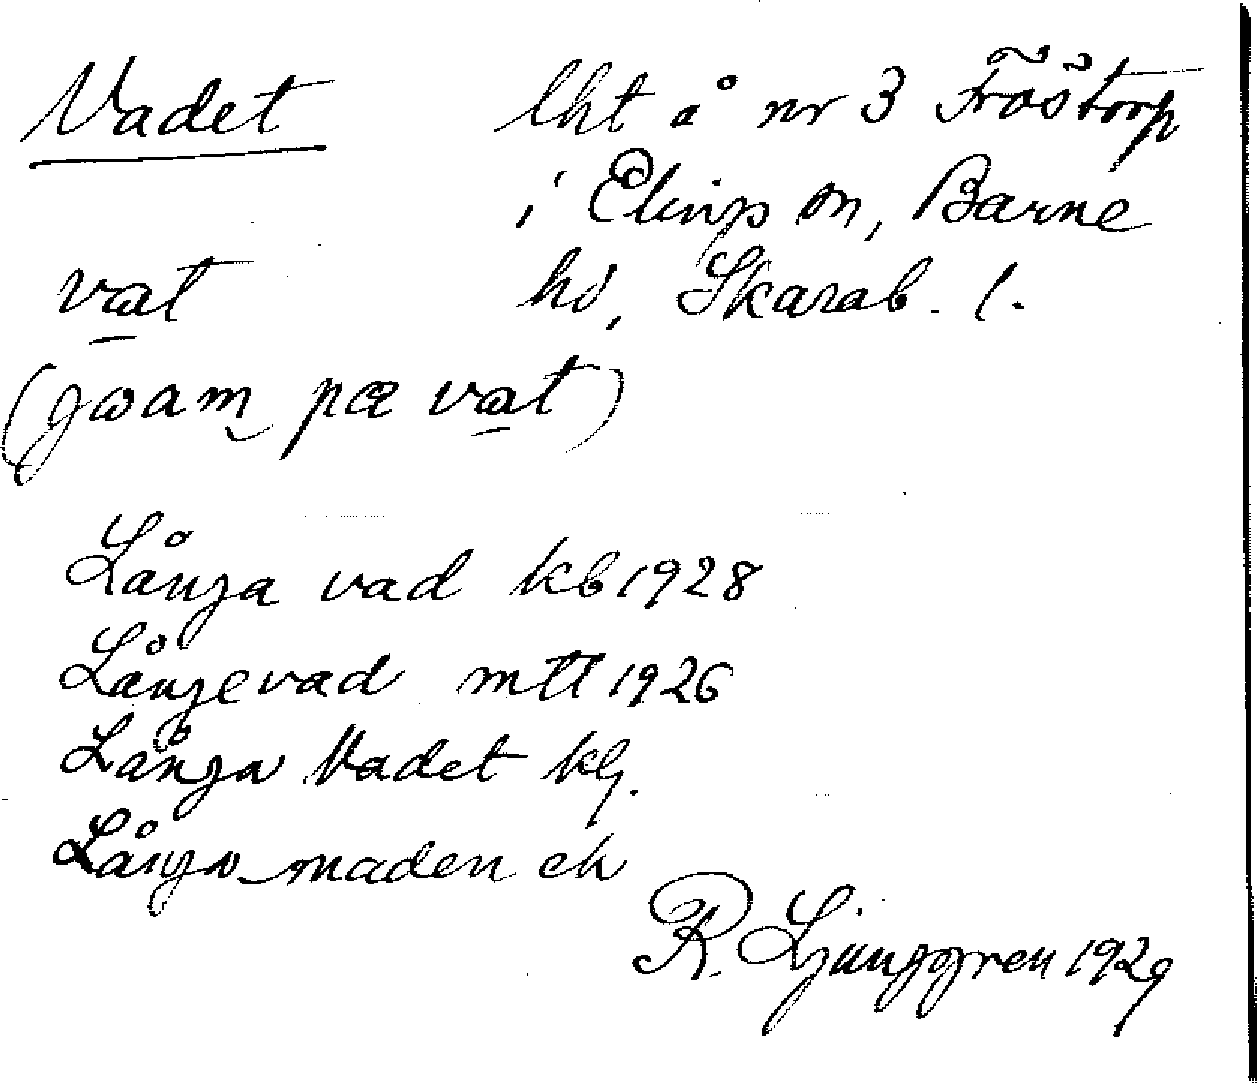 Vadet lht å nr 3 Fröstorp
i Eling sn, Barne
vat hd, Skarab. l.
(gωam pæ vat)
Långa vad kb 1928
Långevad mtl 1926
Långa Vadet kg.
Långa maden ek
R. Ljunggren 1929